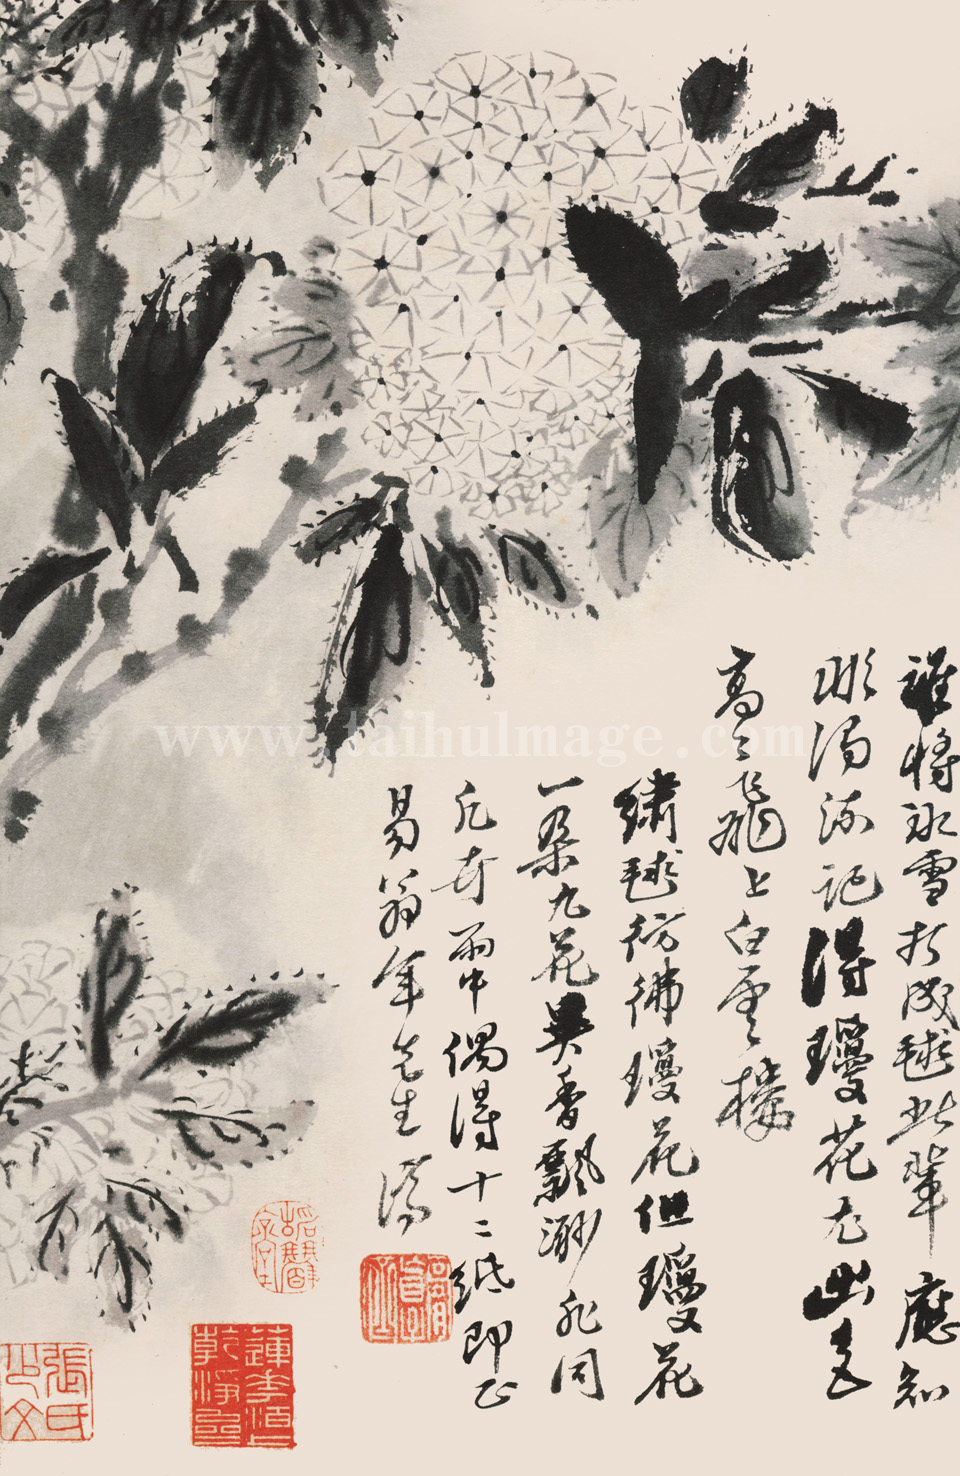 誰將冰雪打成毬此輩應知
濁流記得瓊花尤出色
高々飛上白雲々樓
繡毬彷彿瓊花但瓊花
一朵九花異香飄渺非同
凡卉雨中偶得十二紙即正
易翁年先生 濤
張氏
www.taihuImage.com